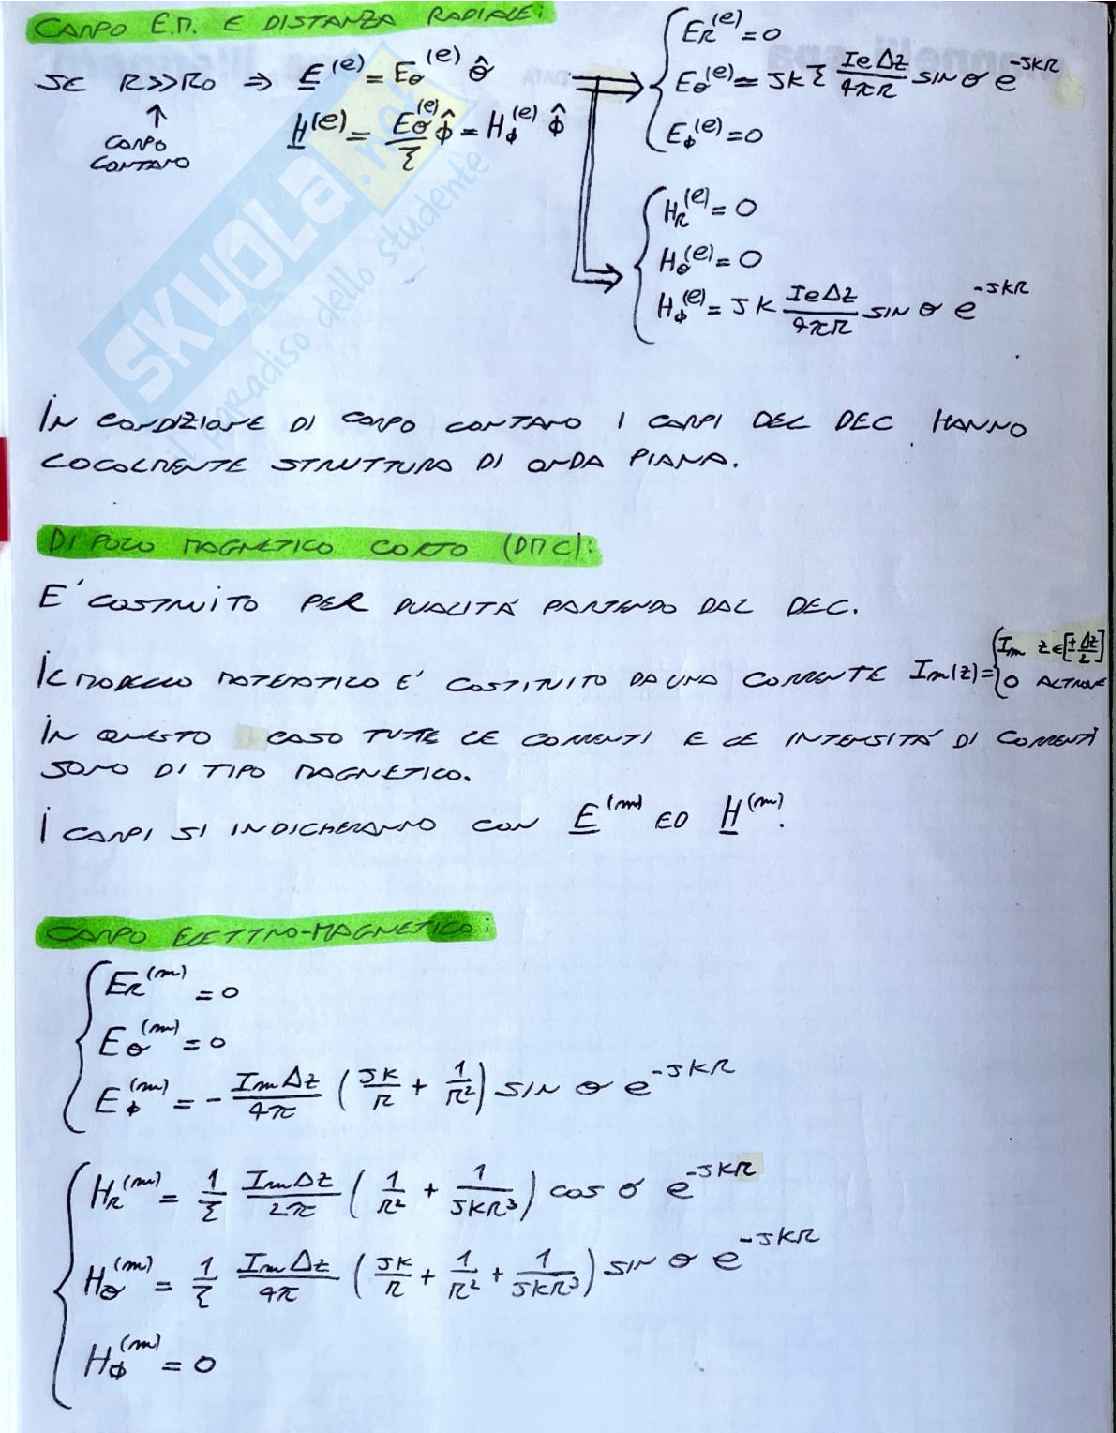 CAMPO E.M. E DISTANZA RADIALE:
SE R>>R0 ⇒ E^(e) = Eθ^(e) θ̂
↑
CAMPO
LONTANO
H^(e) = Eθ^(e)/ζ ϕ̂ = Hϕ^(e) ϕ̂
ER^(e) = 0
Eθ^(e) ≃ JK ζ IeΔz/4πR SIN θ e^-JKR
Eϕ^(e) = 0
HR^(e) = 0
Hθ^(e) = 0
Hϕ^(e) = JK IeΔz/4πR SIN θ e^-JKR
SKUOLA.net
il paradiso dello studente
IN CONDIZIONE DI CAMPO LONTANO I CAMPI DEL DEC HANNO
LOCALMENTE STRUTTURA DI ONDA PIANA.
DIPOLO MAGNETICO CORTO (DMC):
E' COSTRUITO PER DUALITÀ PARTENDO DAL DEC.
IL MODELLO MATEMATICO E' COSTITUITO DA UNA CORRENTE Im(z) = { Im z∈[±Δz/2]
0 ALTROVE
IN QUESTO CASO TUTTE LE CORRENTI E LE INTENSITÀ DI CORRENTI
SONO DI TIPO MAGNETICO.
I CAMPI SI INDICHERANNO CON E^(m) ED H^(m).
CAMPO ELETTRO-MAGNETICO:
ER^(m) = 0
Eθ^(m) = 0
Eϕ^(m) = - ImΔz/4π (JK/R + 1/R²) SIN θ e^-JKR
HR^(m) = 1/ζ ImΔz/2π (1/R² + 1/JKR³) COS θ e^-JKR
Hθ^(m) = 1/ζ ImΔz/4π (JK/R + 1/R² + 1/JKR³) SIN θ e^-JKR
Hϕ^(m) = 0